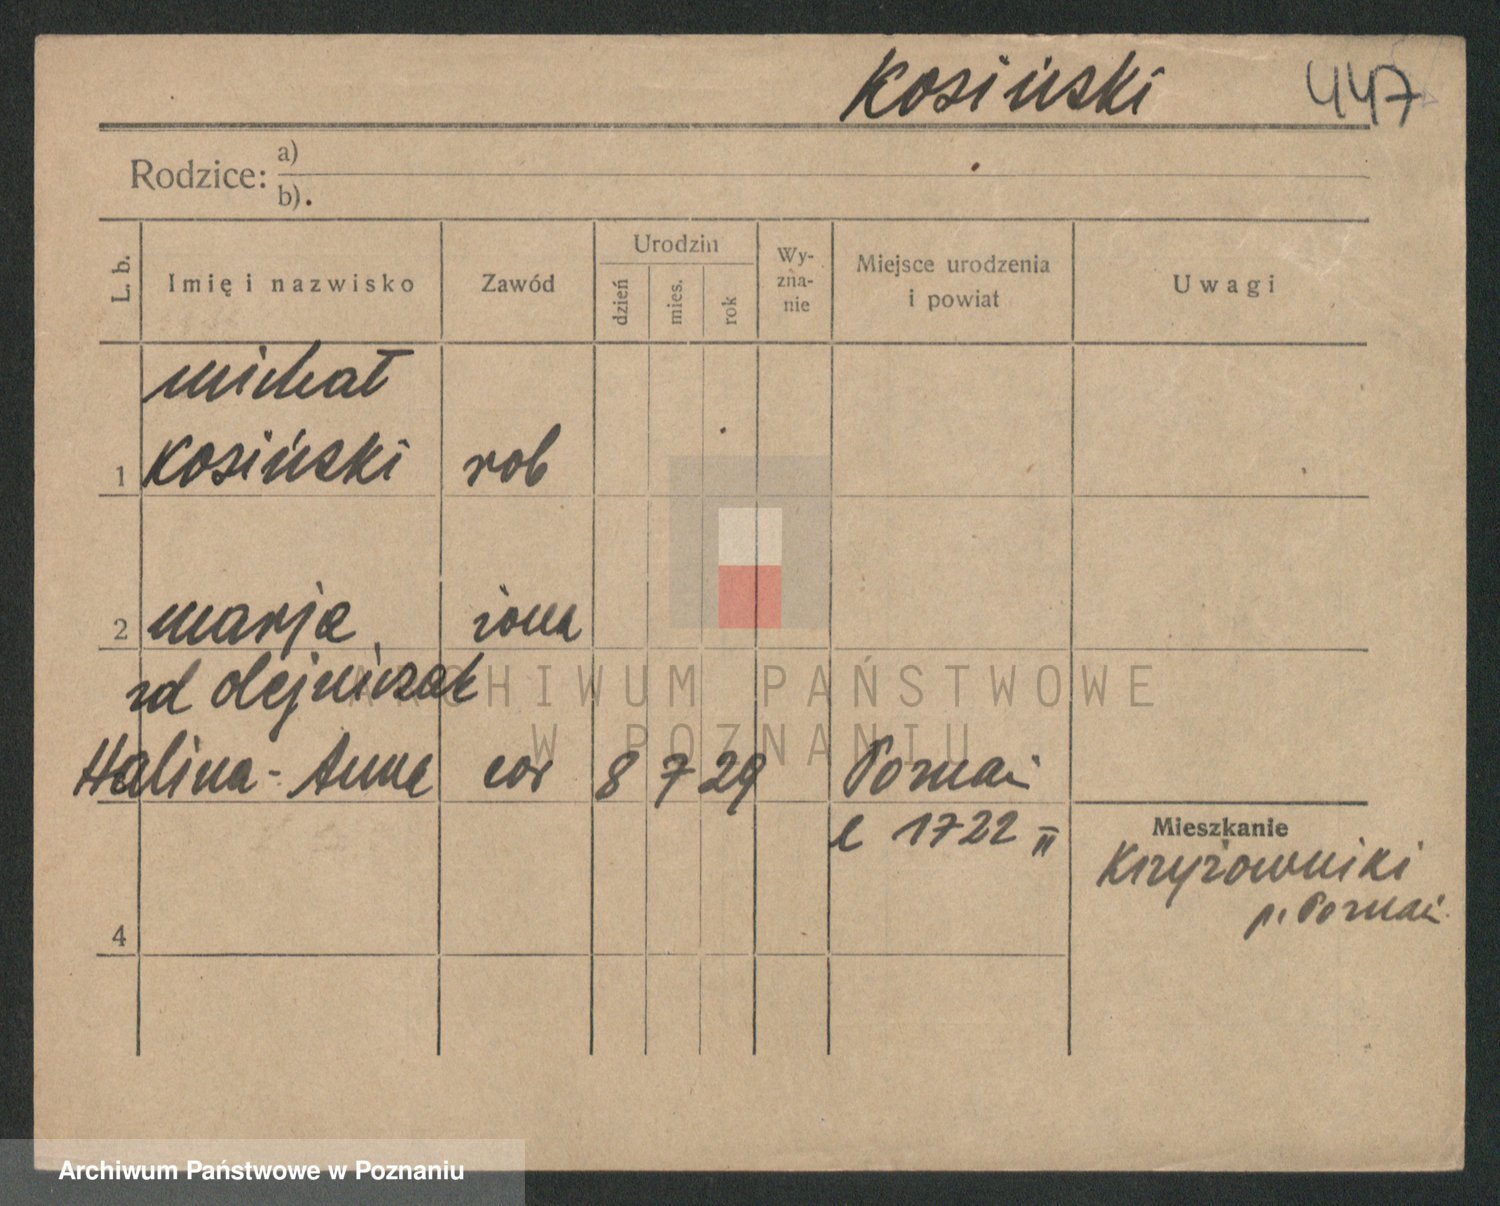 Kosiński 447
Rodzice: a)
b).
L. b.
Imię i nazwisko
Zawód
Urodzin
dzień
mies.
rok
Wy-
zna-
nie
Miejsce urodzenia
i powiat
Uwagi
michał
1 Kosiński rob
2 marja żona
zd olejniczak
Halina-Anna cor 8 7 29 Poznań
l 1722 II
Mieszkanie
Krzyżowniki
p. Poznań
4
ARCHIWUM PAŃSTWOWE
W POZNANIU
Archiwum Państwowe w Poznaniu